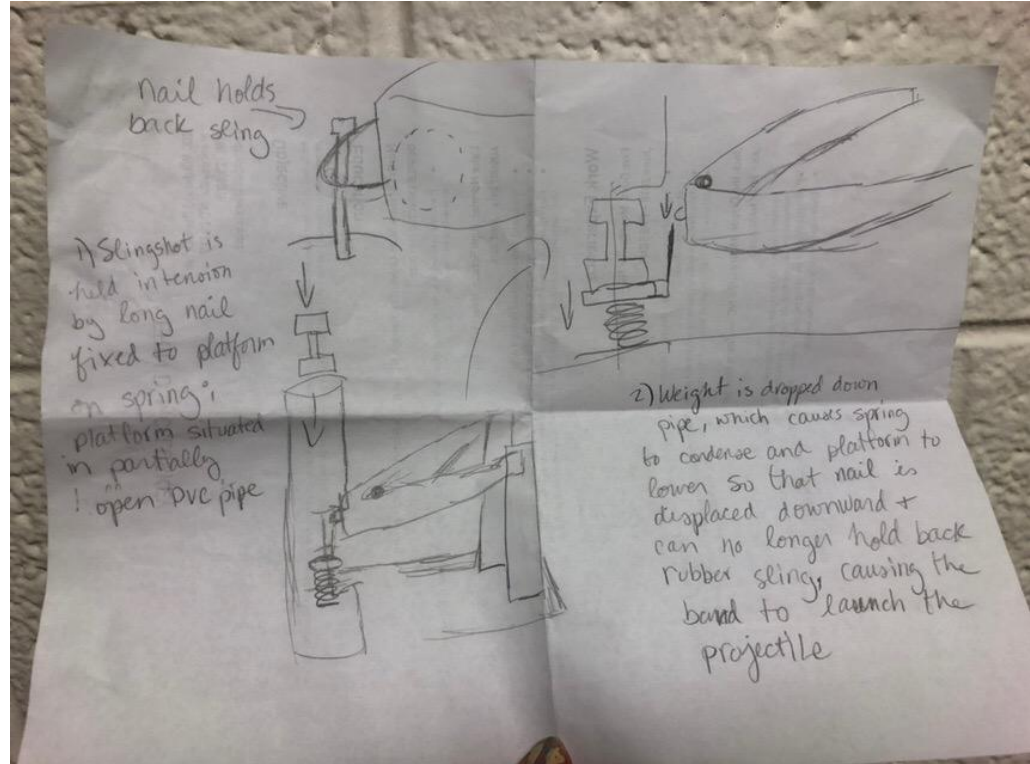 nail holds
back sling
1) Slingshot is
held in tension
by long nail
fixed to platform
on spring;
platform situated
in partially
open PVC pipe
2) Weight is dropped down
pipe, which causes spring
to condense and platform to
lower so that nail is
displaced downward +
can no longer hold back
rubber sling, causing the
band to launch the
projectile